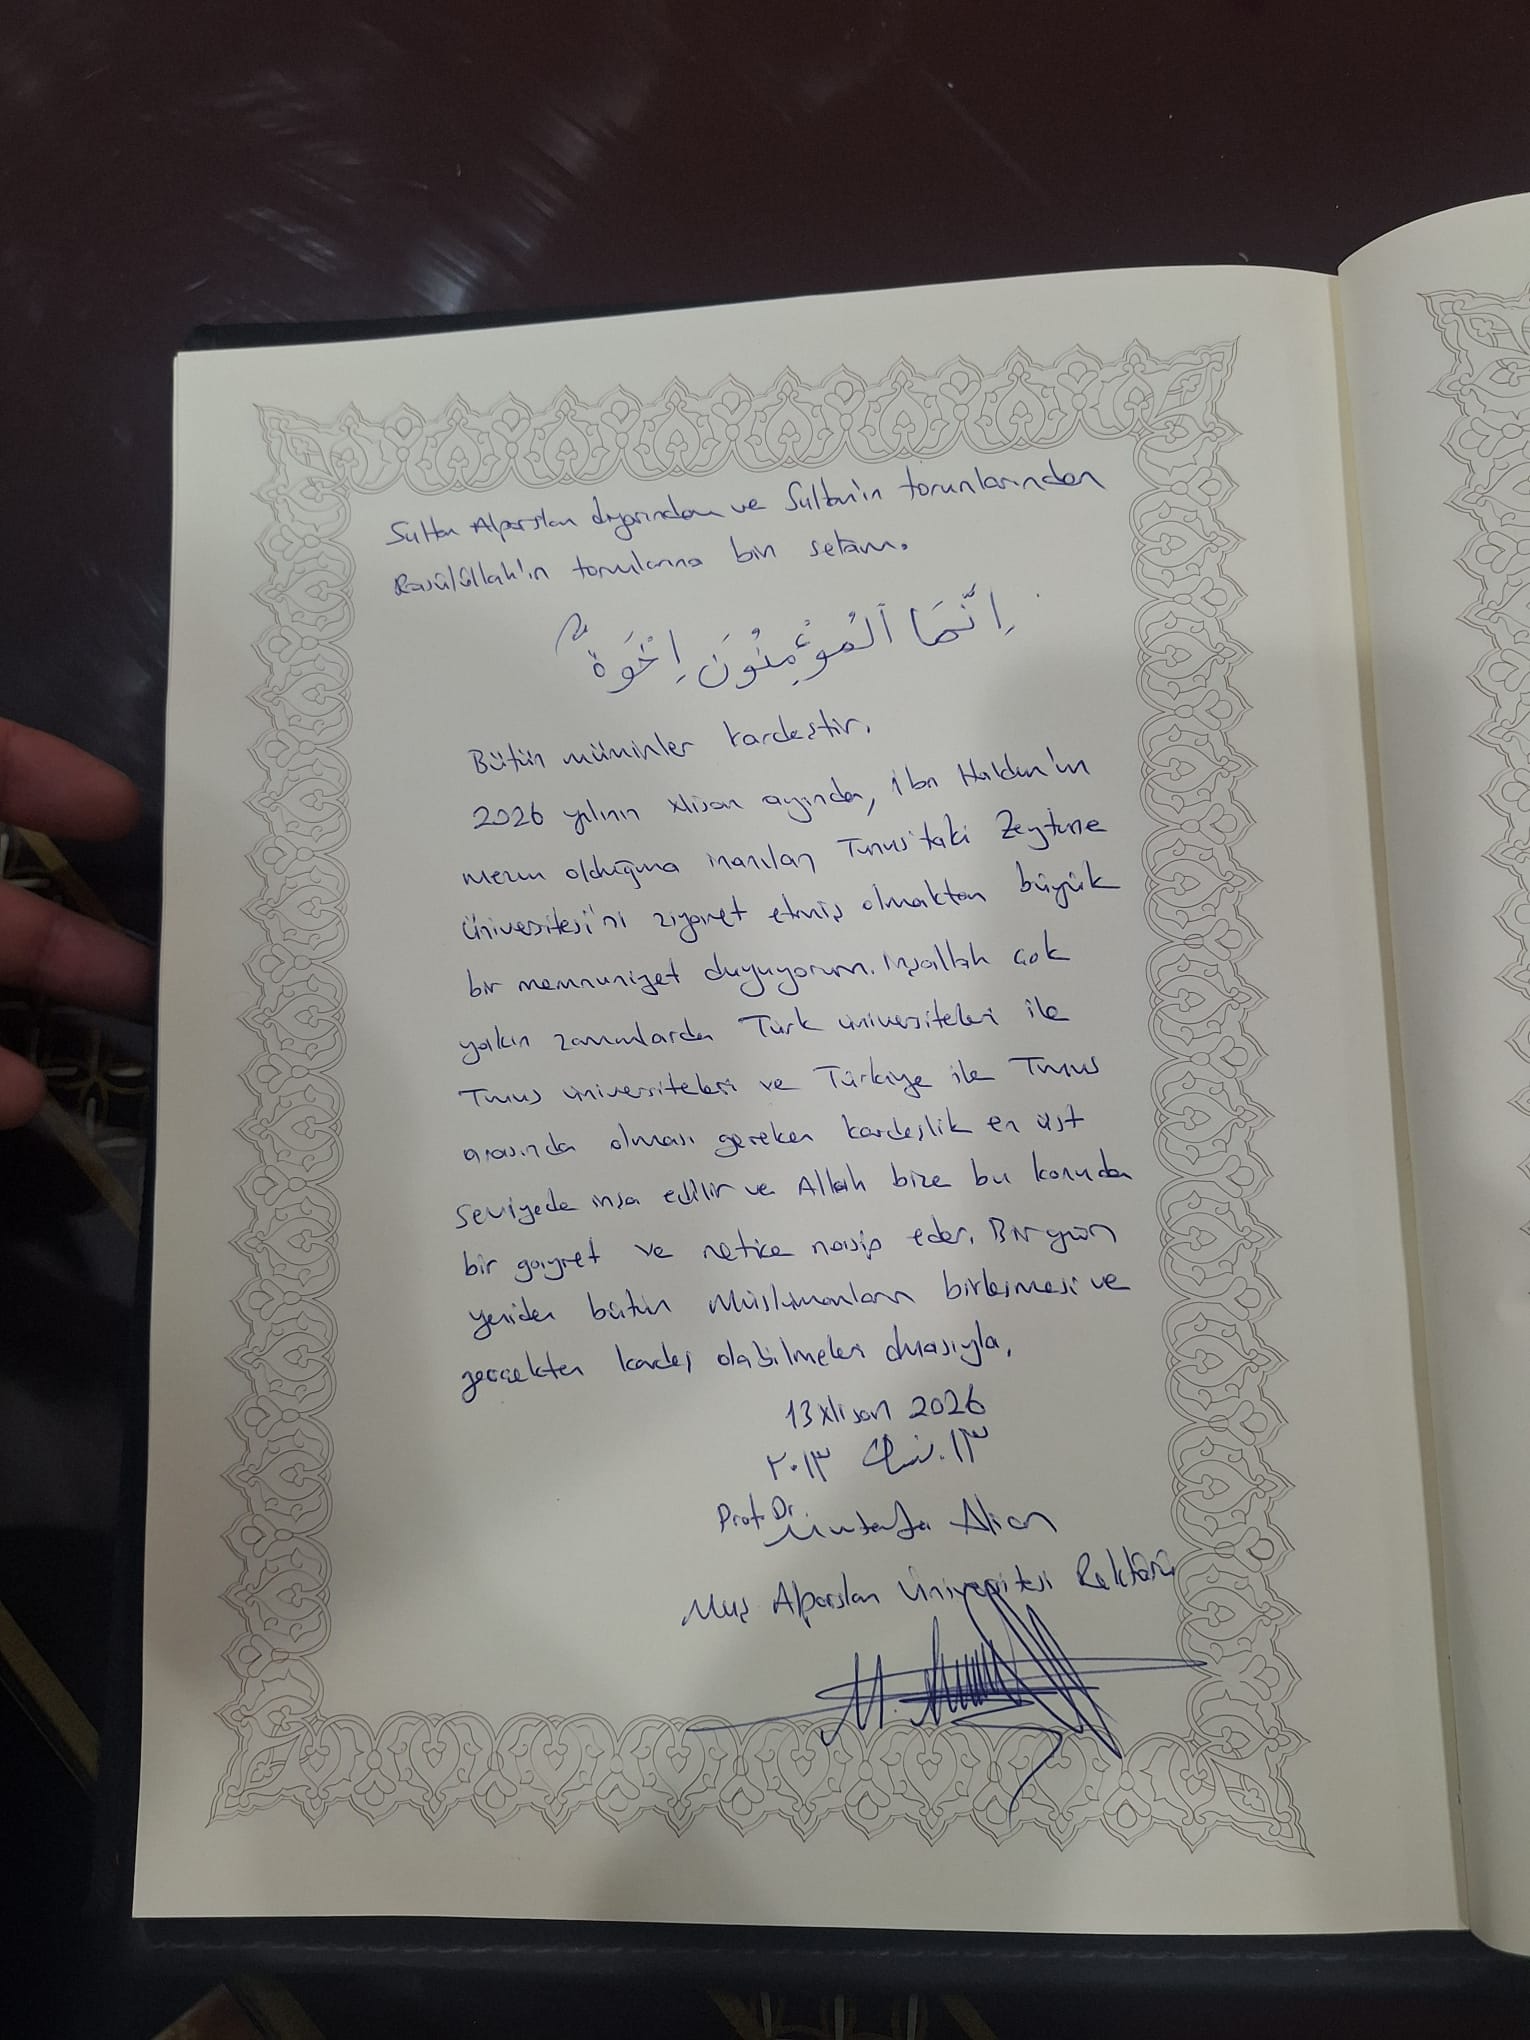 Sultan Alparslan diyarından ve Sultan'ın torunlarından
Rasûlüllah'ın torunlarına bin selam.
اِنَّمَا الْمُؤْمِنُونَ اِخْوَةٌ
Bütün müminler kardeştir.
2026 yılının Nisan ayında, İbn Haldun'un
mezun olduğuna inanılan Tunus'taki Zeytune
Üniversitesi'ni ziyaret etmiş olmaktan büyük
bir memnuniyet duyuyorum. İnşallah çok
yakın zamanlarda Türk üniversiteleri ile
Tunus üniversiteleri ve Türkiye ile Tunus
arasında olması gereken kardeşlik en üst
seviyede inşa edilir ve Allah bize bu konuda
bir gayret ve netice nasip eder. Bir gün
yeniden bütün Müslümanların birleşmesi ve
gerçekten kardeş olabilmeleri duasıyla,
13 Nisan 2026
١٣ ٢٠١٣
Prof. Dr. Mustafa Alican
Muş Alparslan Üniversitesi Rektörü